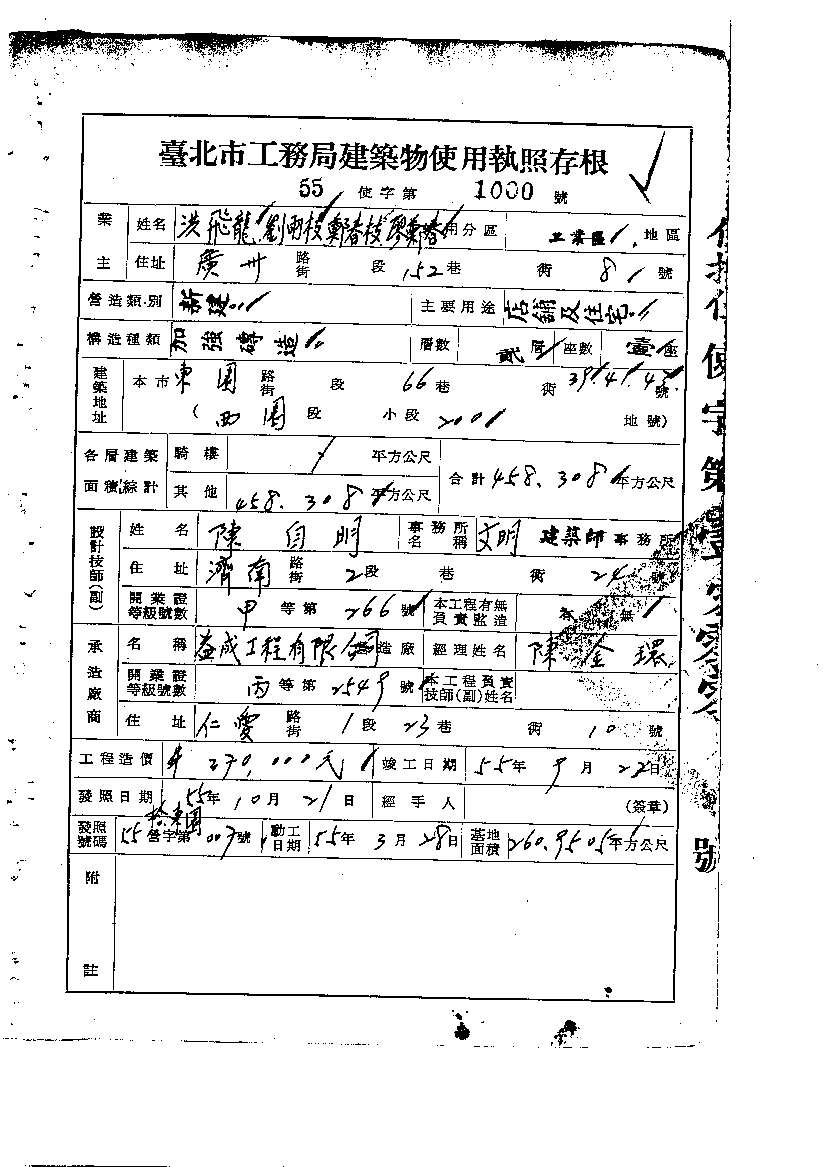 臺北市工務局建築物使用執照存根
55 使字第 1000 號
業主 姓名 洪飛龍 劉雨枝 鄭春枝 用分區 工業區 地區
住址 廣州 路街 段 152 巷 衖 8 號
營造類別 新建 主要用途 店舖及住宅
構造種類 加強磚造 層數 貳層 座數 壹座
建築地址 本市 東園 路街 段 66 巷 衖 39.41.43. 號
(西園 段 小段 200 地號)
各層建築面積綜計 騎樓 / 平方公尺 合計 458.308 平方公尺
其他 458.308 平方公尺
設計技師(副) 姓名 陳自明 事務所名稱 文明 建築師事務所
住址 濟南 路街 2段 巷 衖 24 號
開業證等級號數 甲 等第 266 號 本工程有無負責監造 無
承造廠商 名稱 益成工程有限公司 造廠 經理姓名 陳金環
開業證等級號數 丙 等第 2549 號 本工程負責技師(副)姓名
住址 仁愛 路街 1段 23巷 衖 10 號
工程造價 270,000元 竣工日期 55年 9月 22日
發照日期 55年 10月 21日 經手人 (簽章)
發照號碼 55 營字第 007號 動工日期 55年 3月 28日 基地面積 260.9505 平方公尺
附註
使字第
號